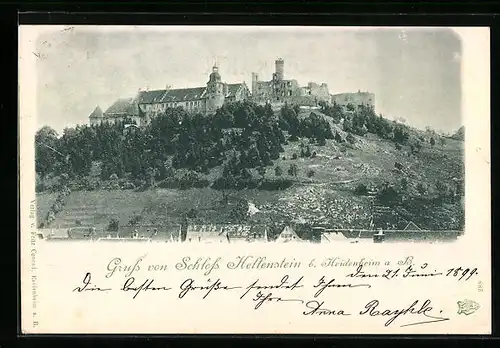 Gruß von Schloß Hellenstein b. Heidenheim a. B.
den 21. Juni 1899.
Die besten Grüße sendet Ihnen
Ihre
Anna
Verlag v. Fritz Conrad, Heidenheim a. B.